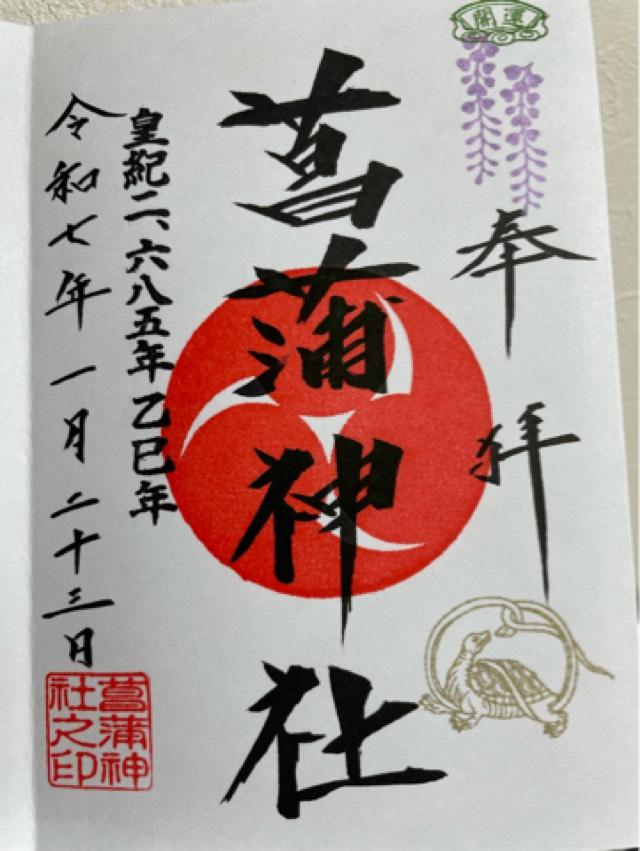 開運
奉拝
菖蒲神社
皇紀二、六八五年乙巳年
令和七年一月二十三日
菖蒲神
社之印